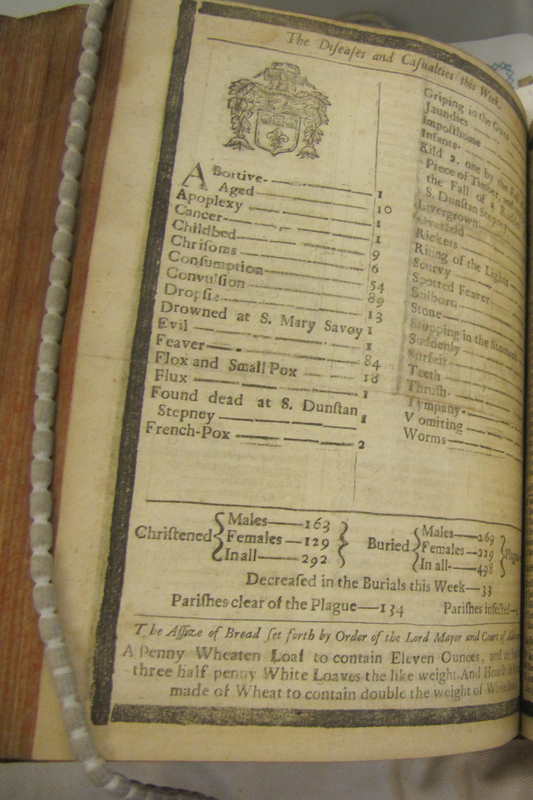 The Diſeaſes and Caſualties this Week.
ABortive- 1
Aged 10
Apoplexy 1
Cancer 1
Childbed 9
Chriſoms 6
Conſumption 54
Convulſion 89
Dropſie 13
Drowned at S. Mary Savoy 1
Evil 1
Feaver 84
Flox and Small Pox 18
Flux 1
Found dead at S. Dunſtan
Stepney 1
French-Pox 2
Griping in the Guts
Jaundies
Impoſthume
Infants
Kild 2. one by the Fall
Piece of Timber
the Fall of a
S. Dunſtan Stepney
Livergrown
Rickets
Riſing of the Lights
Scurvy
Spotted Feaver
Stilborn
Stone
Stopping in the Stomach
Suddenly
Surfeit
Teeth
Thruſh
Tympany
Vomiting
Worms
Chriſtened { Males—163
Females—129
In all—292 }
Buried { Males—269
Females—229
In all—498 }
Decreaſed in the Burials this Week—33
Pariſhes clear of the Plague—134 Pariſhes infected—
The Aſſize of Bread ſet forth by Order of the Lord Major and Court of
A Penny Wheaten Loaf to contain Eleven Ounces, and
three half penny White Loaves the like weight. And
made of Wheat to contain double the weight of